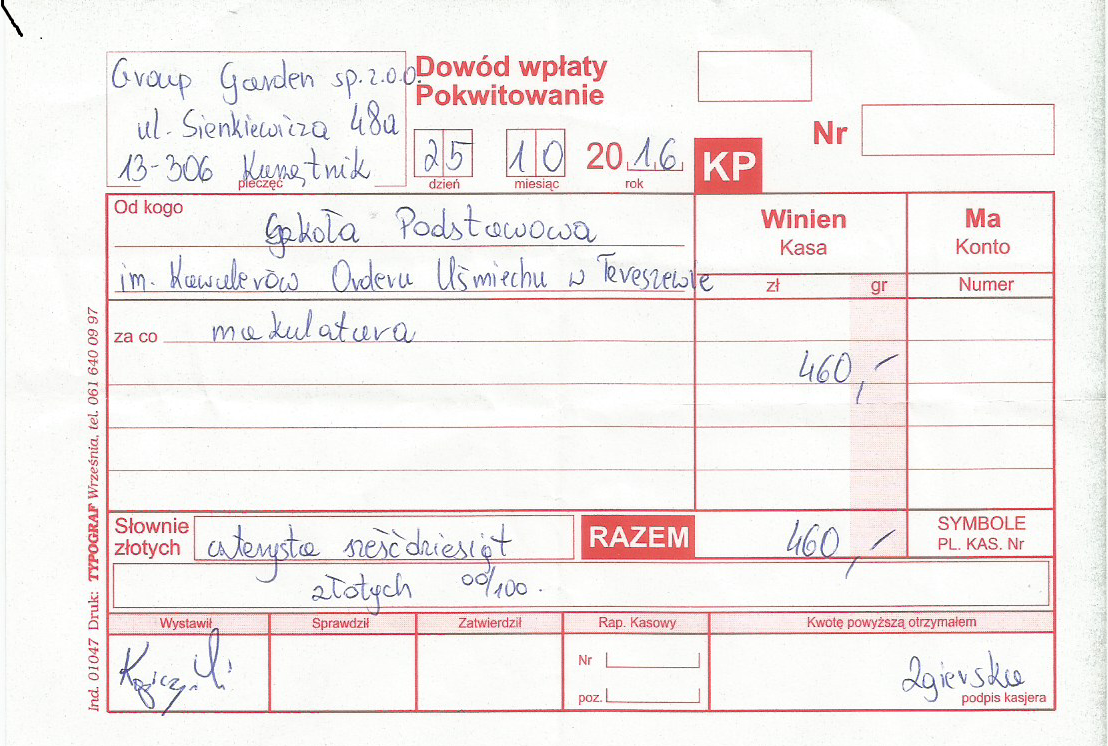 Group Garden sp.z.o.o.
ul. Sienkiewicza 48a
13-306 Kurzętnik
pieczęć
Dowód wpłaty
Pokwitowanie
25 10 2016
dzień miesiąc rok
KP
Nr
Od kogo Szkoła Podstawowa
im. Kawalerów Orderu Uśmiechu w Tereszewie
Winien
Kasa
zł gr
Ma
Konto
Numer
za co makulatura
460,-
Słownie
złotych
czterysta sześćdziesiąt
RAZEM 460,-
SYMBOLE
PL. KAS. Nr
złotych 00/100.
Wystawił Sprawdził Zatwierdził Rap. Kasowy Kwotę powyższą otrzymałem
Nr
poz.
Zgierska
podpis kasjera
Ind. 01047 Druk: TYPOGRAF Września, tel. 061 640 09 97